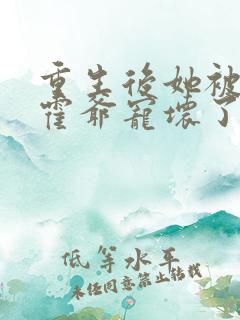 重生后她被
霍爷宠坏了
低等水平
未经同意禁止转载